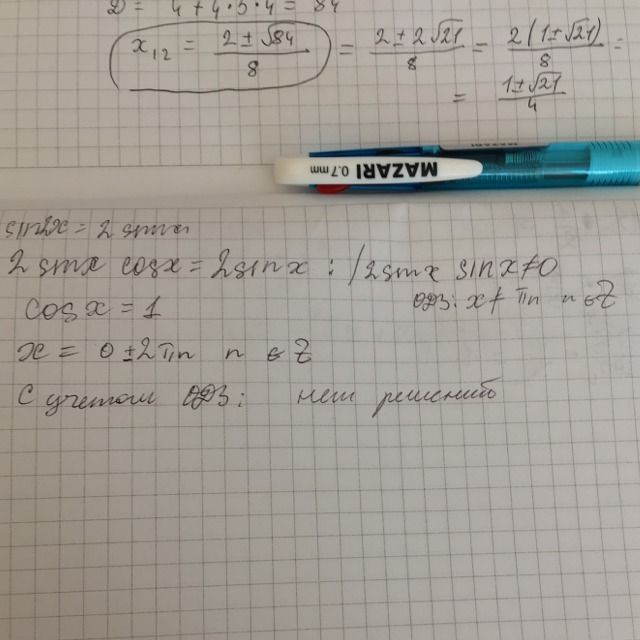 D = 4 + 4·5·4 = 84
x₁₂ = (2 ± √84)/8 = (2 ± 2√21)/8 = 2(1 ± √21)/8 =
= (1 ± √21)/4
MAZARI 0.7 mm
sin2x = 2 sinx
2 sinx cosx = 2 sinx : /2sinx sinx ≠ 0
cosx = 1 ОДЗ: x ≠ πn n ∈ Z
x = 0 ± 2πn n ∈ Z
С учетом ОДЗ: нет решений